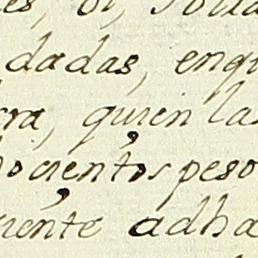 dadas, enq
rra, quien las
hocientos peso
iente adha